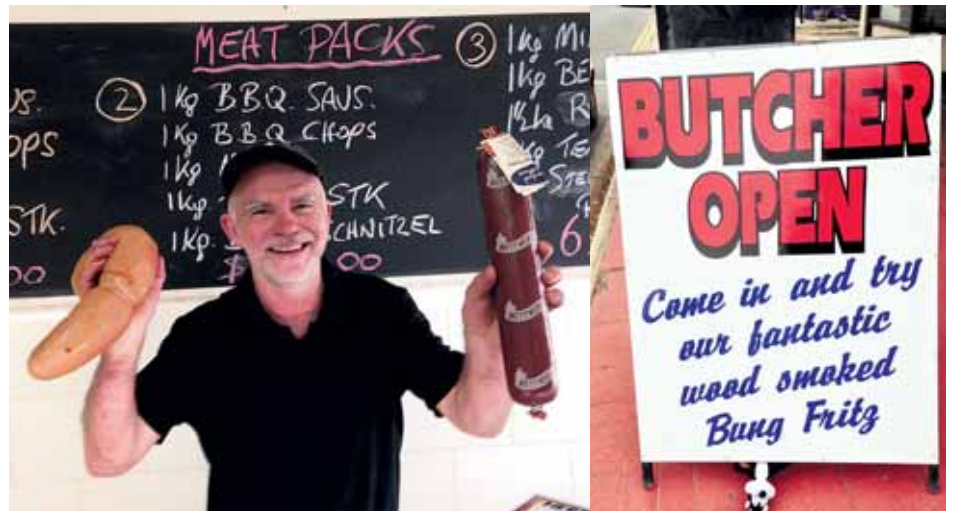 MEAT PACKS
US.
OPS
STK.
00
2 1Kg BBQ SAUS.
1Kg BBQ CHOPS
1Kg
1Kg STK
1Kg. CHNITZEL
$ 00
3 1kg MI
1kg BE
R
kg TE
STE
6
BUTCHER
OPEN
Come in and try
our fantastic
wood smoked
Bung Fritz